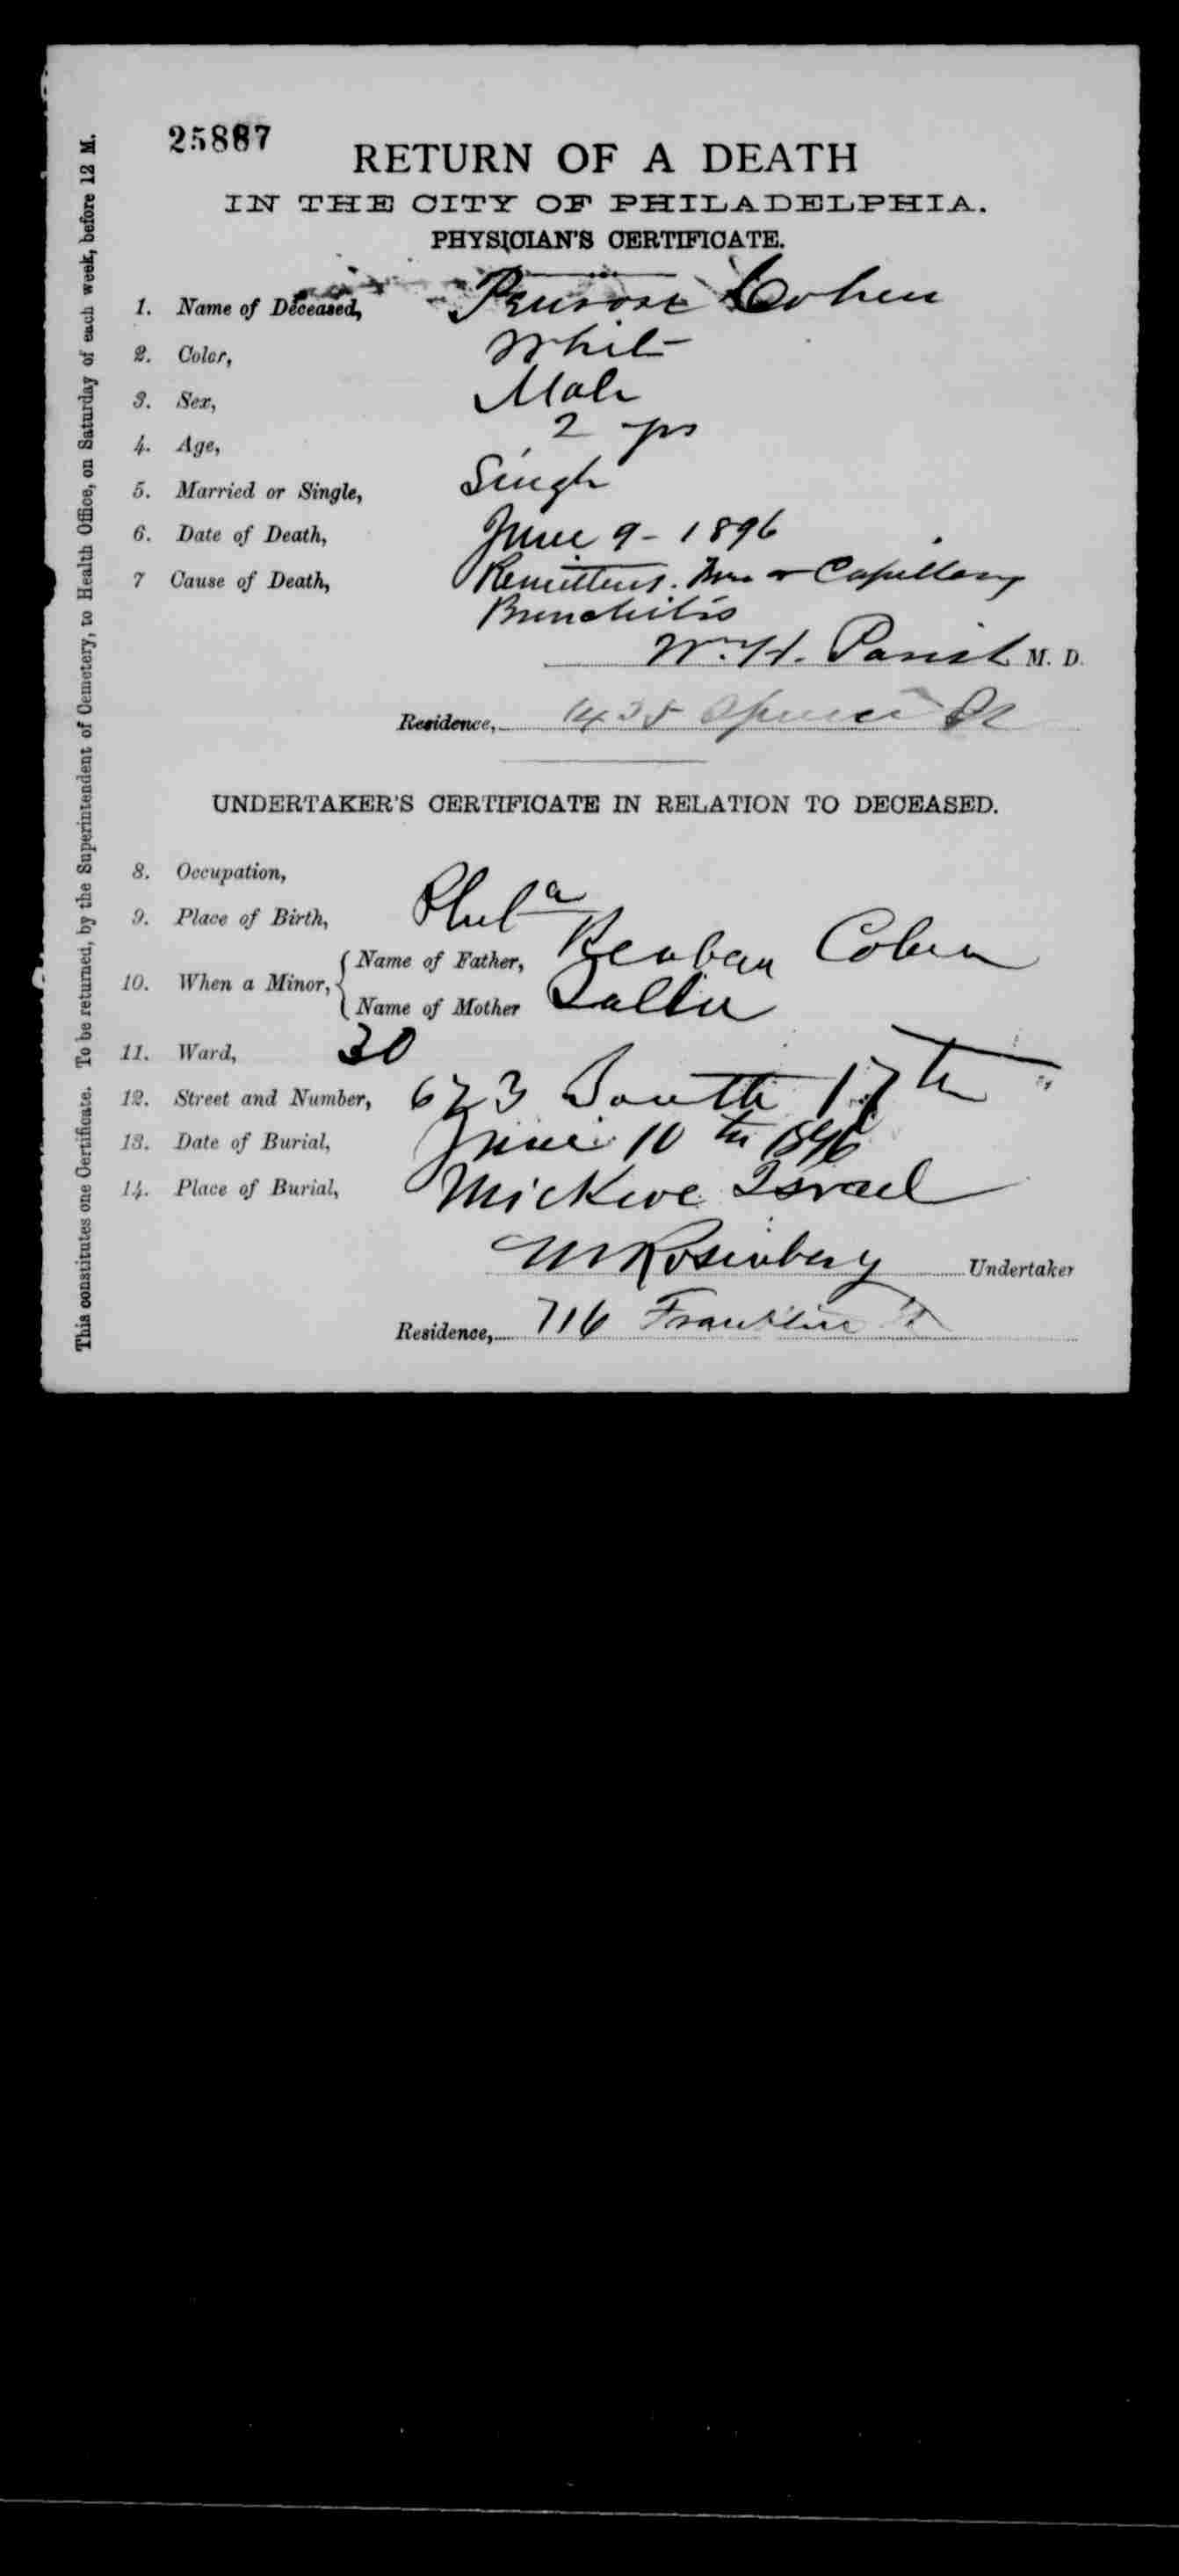 25887
RETURN OF A DEATH
IN THE CITY OF PHILADELPHIA.
PHYSICIAN'S CERTIFICATE.
1. Name of Deceased, Penrose Cohen
2. Color, White
3. Sex, Male
4. Age, 2 yrs
5. Married or Single, Single
6. Date of Death, June 9 - 1896
7 Cause of Death, Remittent Capillary
Bronchitis
W. H. Parish M. D.
Residence, 1435 Spruce St
UNDERTAKER'S CERTIFICATE IN RELATION TO DECEASED.
8. Occupation,
9. Place of Birth, Phila
10. When a Minor, { Name of Father, Reuben Cohen
Name of Mother Sallie
11. Ward, 30
12. Street and Number, 623 South 17th
13. Date of Burial, June 10th 1896
14. Place of Burial, Mickve Israel
M Rosenberg Undertaker
Residence, 716 Franklin St
This constitutes one Certificate. To be returned, by the Superintendent of Cemetery, to Health Office, on Saturday of each week, before 12 M.